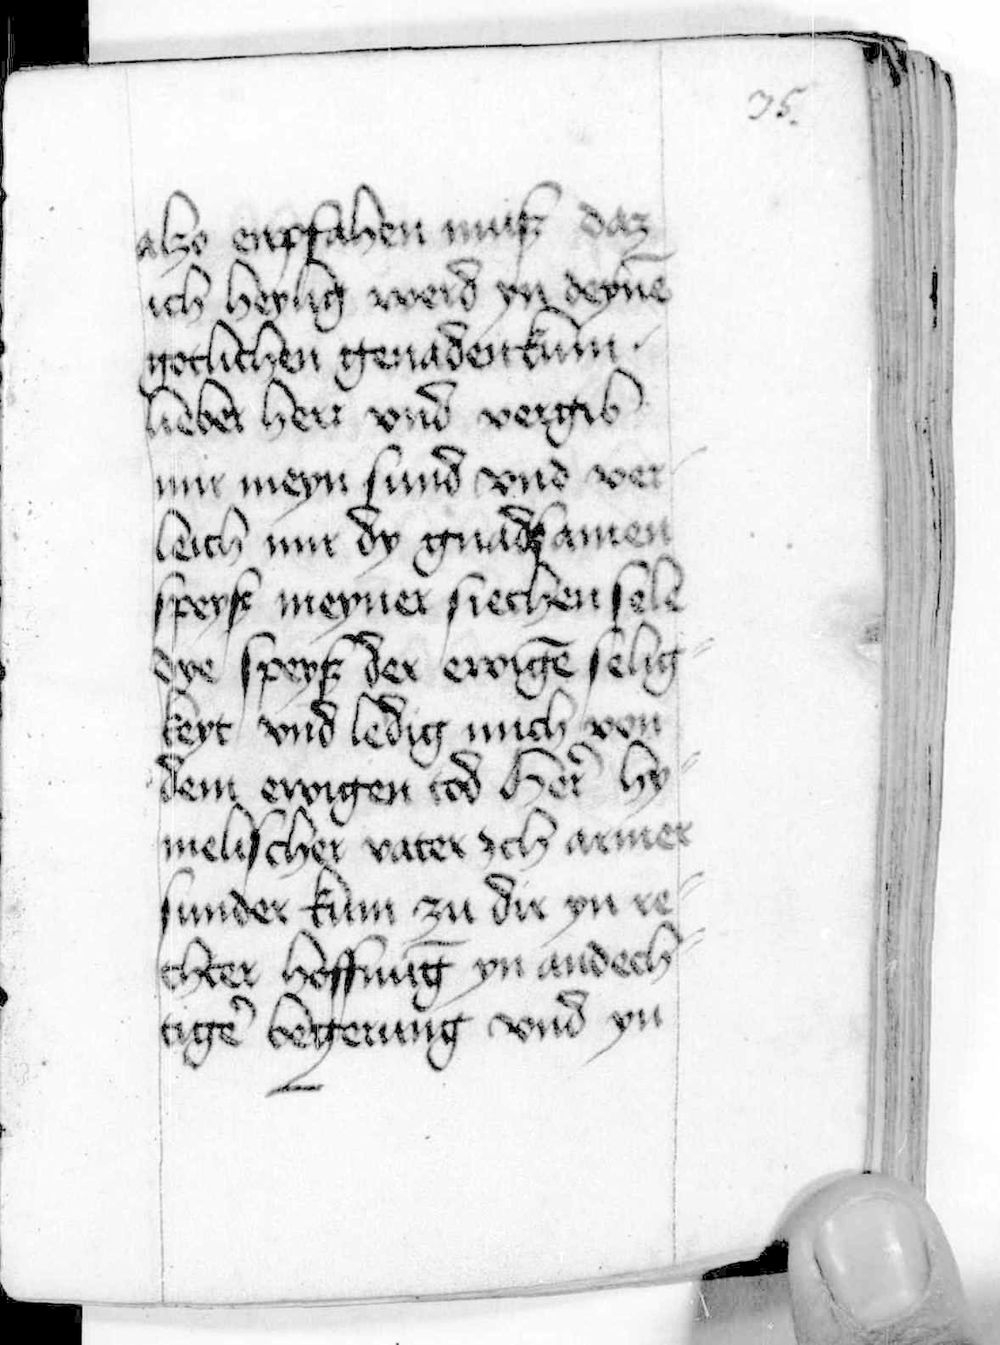 75.
alzo enpfahen muß daz
ich heylig werd yn deynē
gotlichen genaden kum
lieber herr vnd vergib
mir meyn sund vnd ver-
leich mir dy gnadsamen
speyß meyner siechen sele
dye speyß der ewigē selig-
keyt vnd ledig mich von
dem ewigen tod her̄ hy-
melischer vater Ich armer
sunder kum zu dir yn re-
chter hoffnūg yn andech-
tiger begerung vnd yn